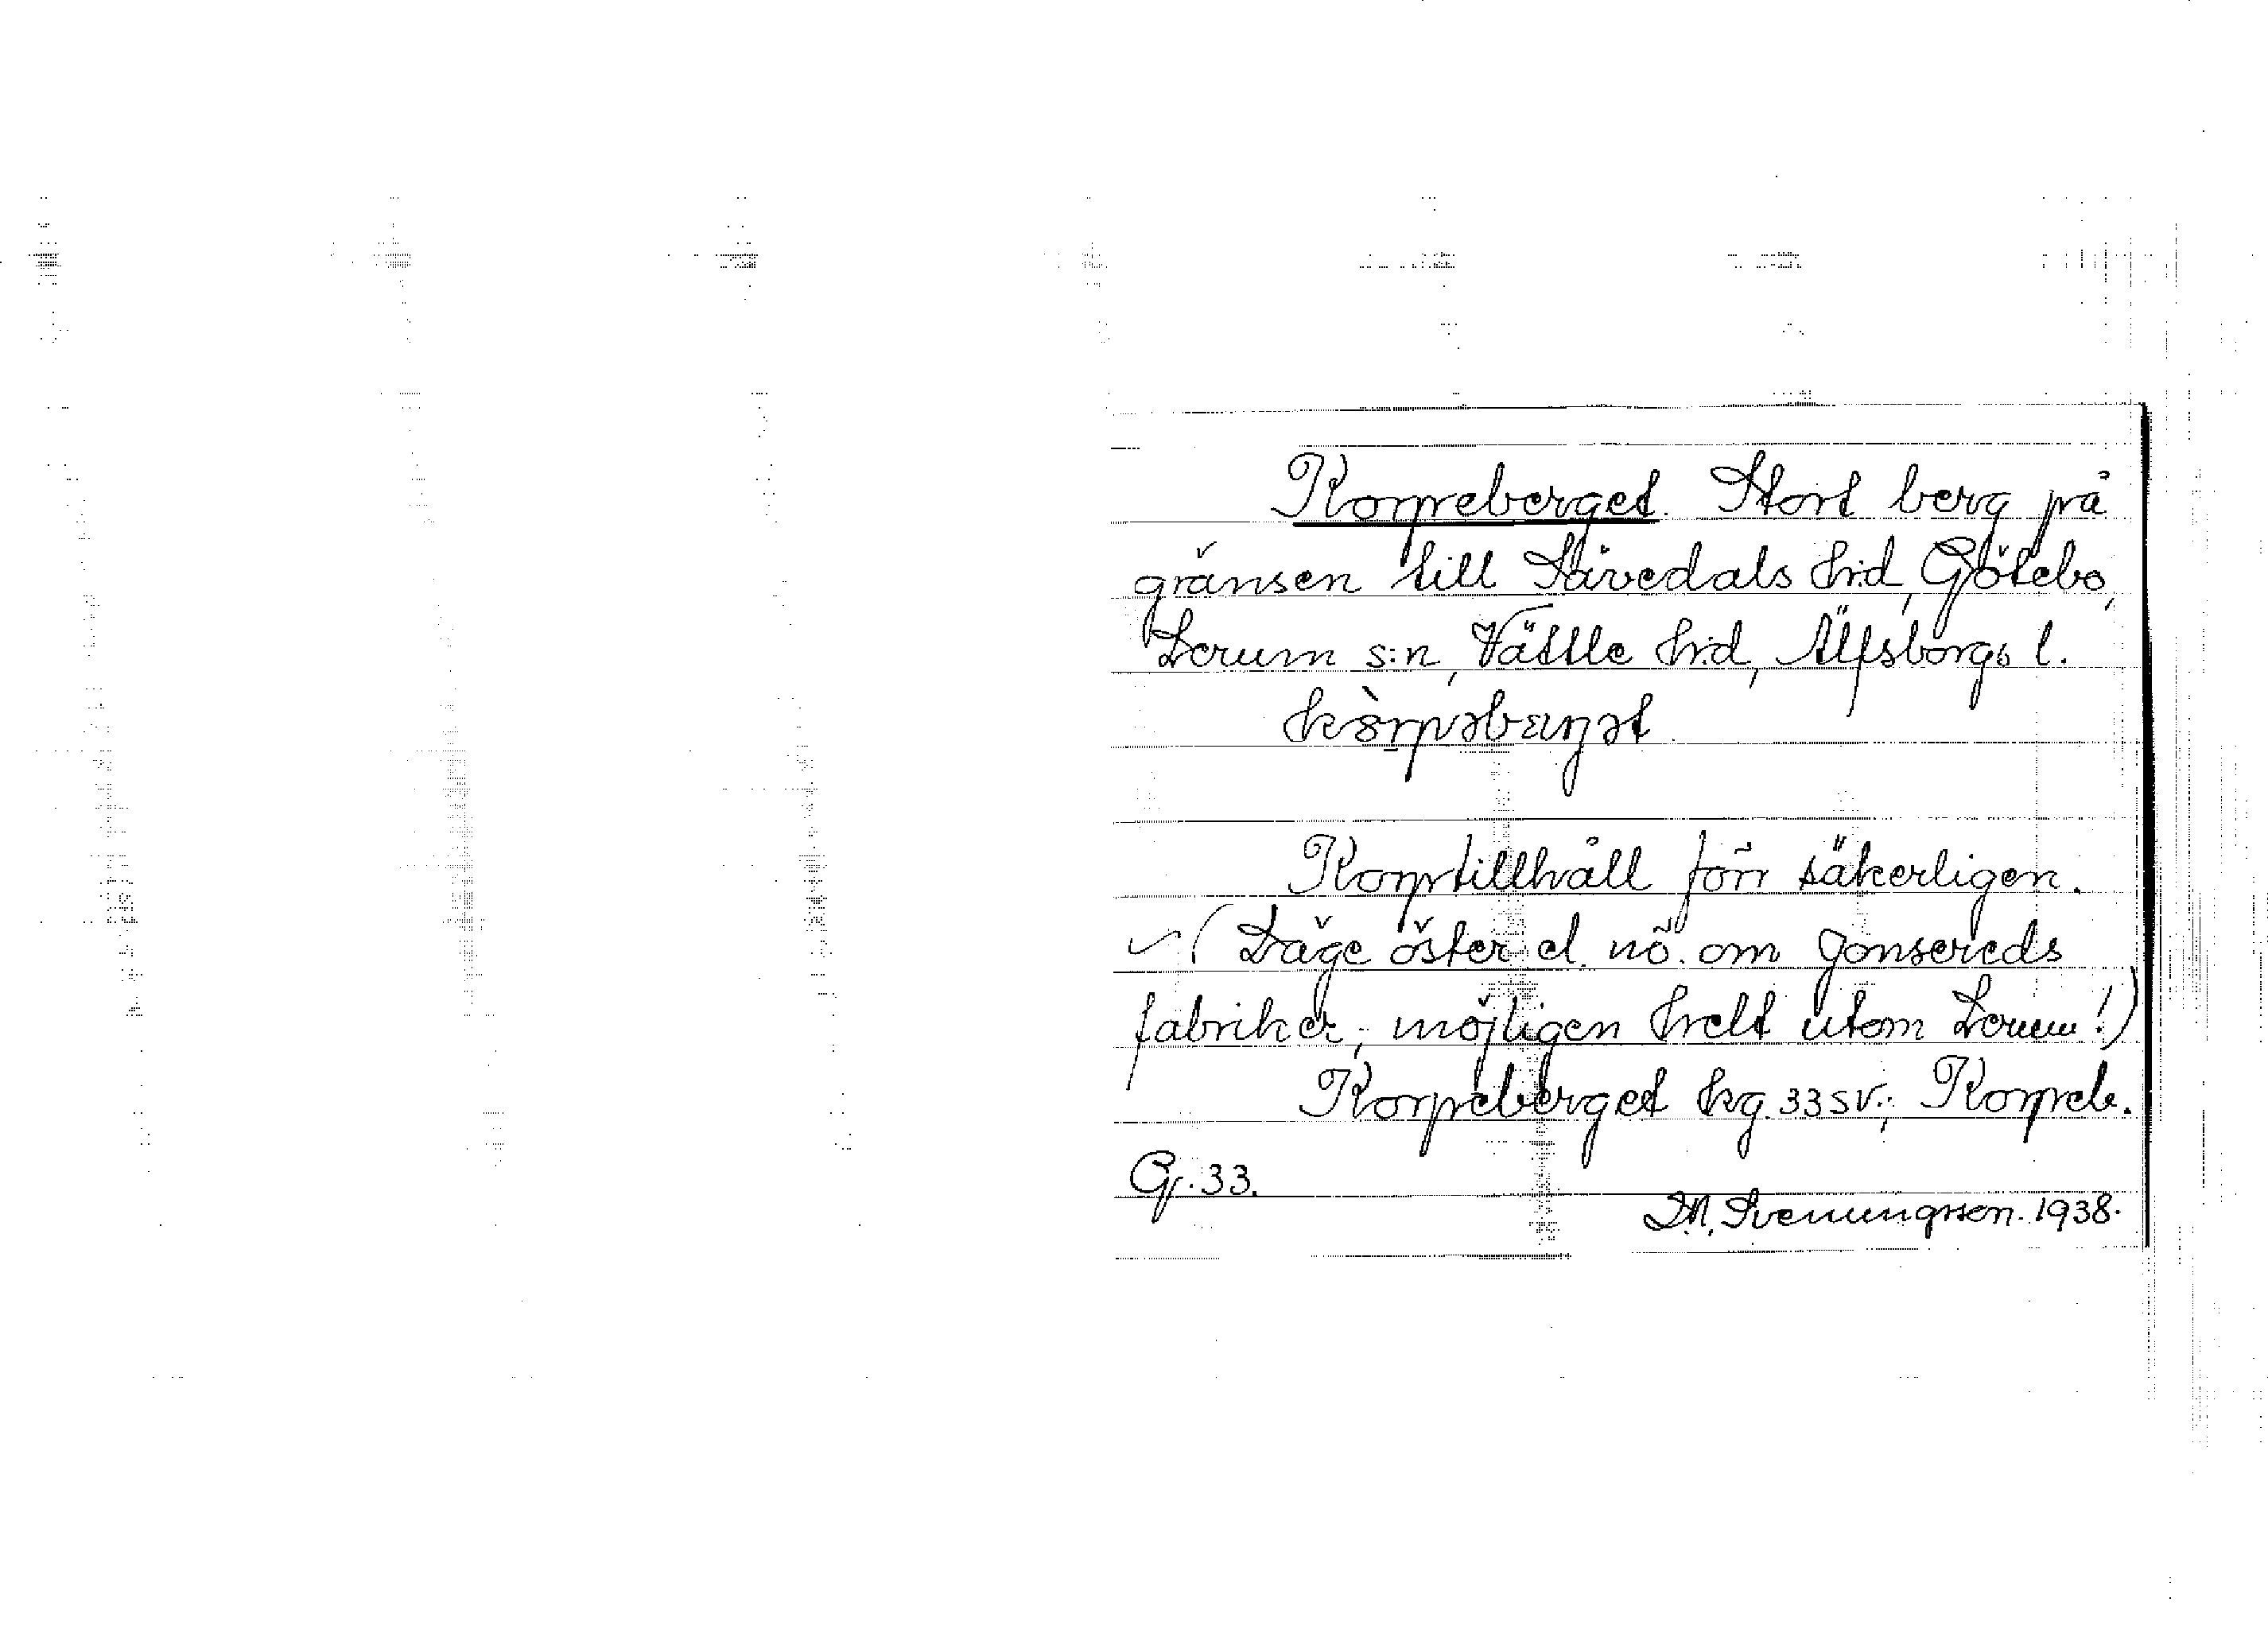 Korpeberget. Stort berg på
gränsen till Sävedals h:d, Götebo,
Lerum s:n, Vättle h:d, Älfsborgs l.
Korptillhåll förr säkerligen.
(Läge öster el. nö. om Jonsereds
fabriker, möjligen helt utom Lerum!)
Korpeberget hg. 33 sv.; Korpeb.
G. 33.
Svenungsson. 1938.